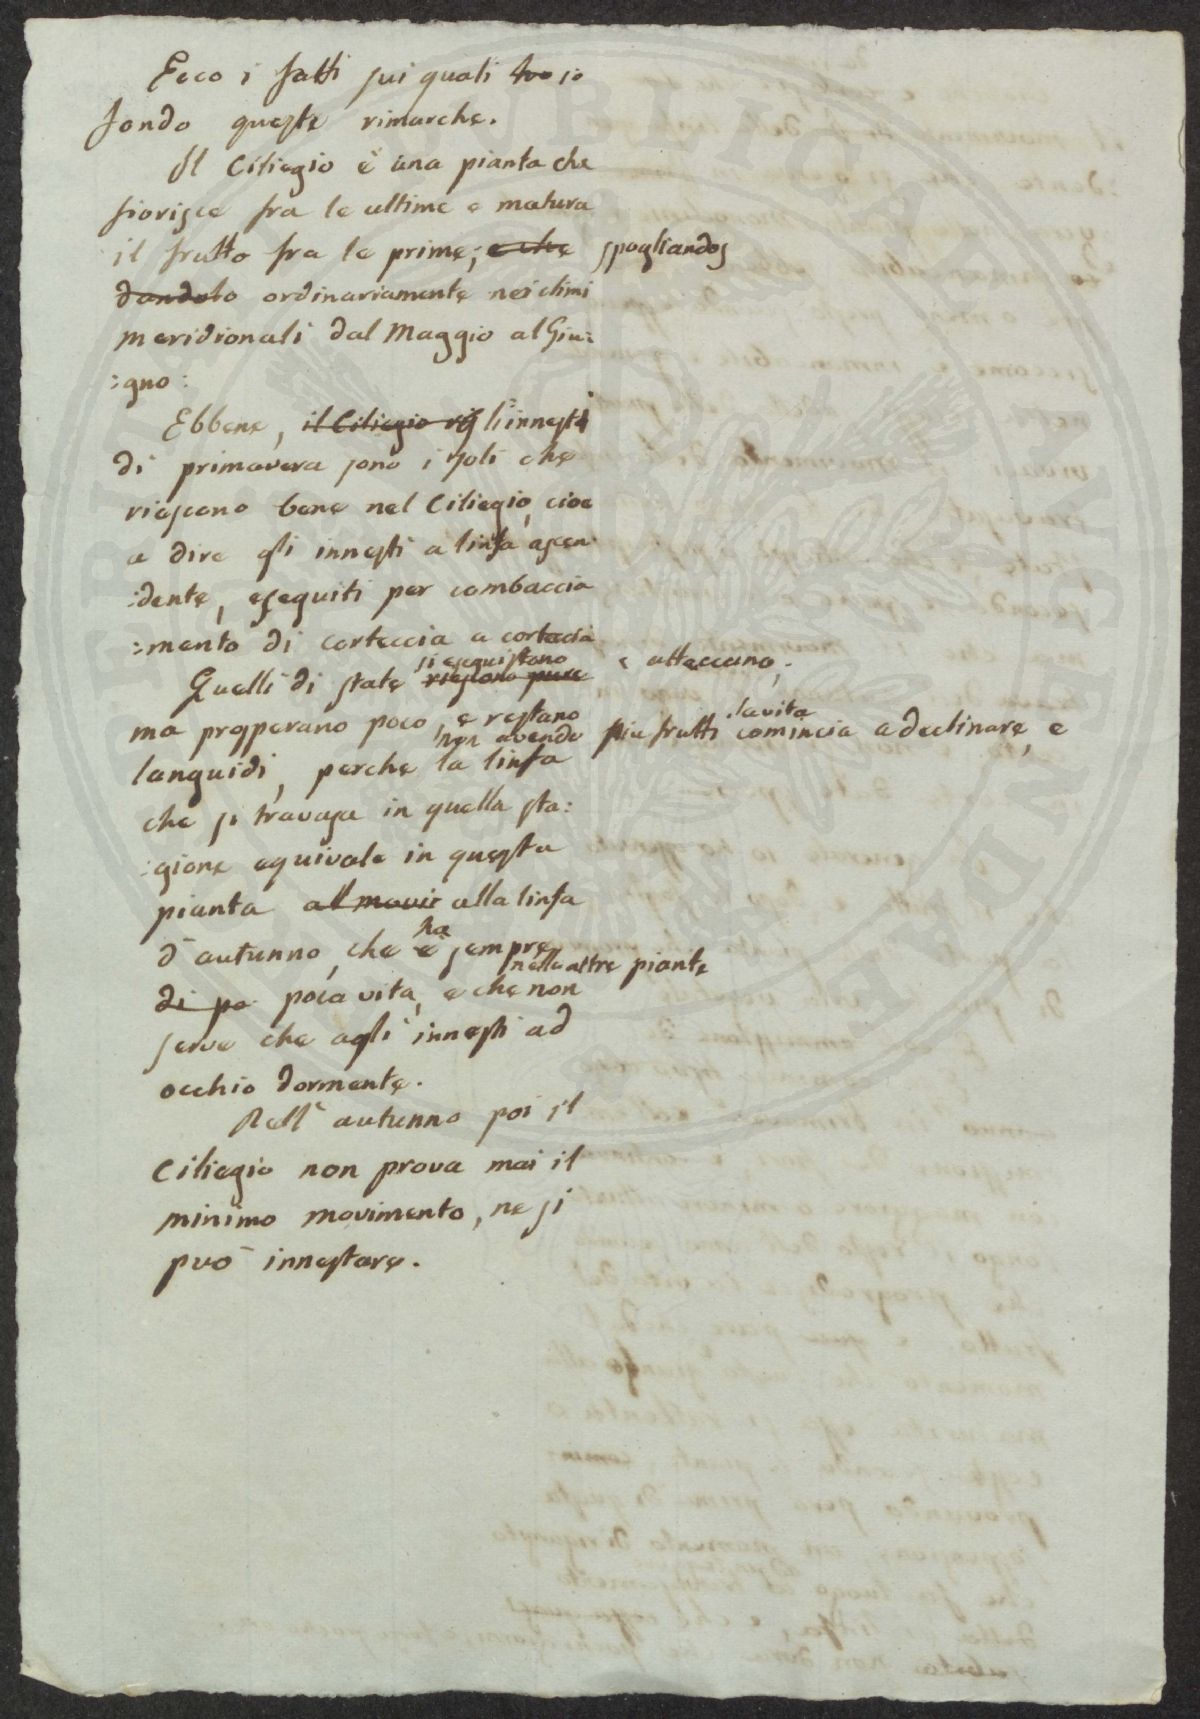 Ecco i fatti sui quali io
fondo queste rimarche.
Il Ciliegio è una pianta che
fiorisce fra le ultime e matura
il frutto fra le prime; e che spogliandos
dandolo ordinariamente nei climi
meridionali dal Maggio al Giu:
:gno:
Ebbene, il Ciliegio gl'innesti
di primavera sono i soli che
riescono bene nel Ciliegio, cioe
a dire gli innesti a linfa ascen
:dente, eseguiti per combaccia
:mento di corteccia a corteccia
si eseguiscono
Quelli di state riescono pure e attaccano,
ma prosperano poco, e restano
non avendo più frutti la vita comincia a declinare, e
languidi, perche la linfa
che si travasa in quella sta:
:gione equivale in questa
pianta alla linfa
ha
d'autunno, che è sempre
nelle altre piante
di po poca vita, e che non
serve che agli innesti ad
occhio dormente.
Nell'autunno poi il
Ciliegio non prova mai il
minimo movimento, ne si
può innestare.